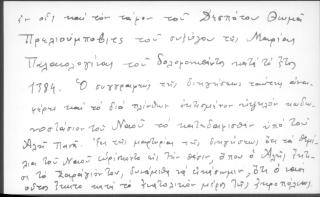 ἐν οἷς καὶ τὸν τάφον τοῦ Δεσπότου Θωμᾶ
Πρελιούμποβιτς τοῦ συζύγου τῆς Μαρίας
Παλαιολογίνας τοῦ δολοφονηθέντος κατὰ τὸ ἔτος
1384. Ὁ συγγραφεὺς τῆς διηγήσεως ταύτης ἀναφέρει
καὶ τὸ διὰ πλίνθων ἐκτισμένον ὑψηλὸν κωδωνοστάσιον
τοῦ Ναοῦ τὸ κατεδαφισθὲν ὑπὸ τοῦ
Ἀλῆ Πασᾶ. Ἐκ τῆς μαρτυρίας τῆς διηγήσεως, ὅτι τὰ θεμέλια
τοῦ Ναοῦ εὑρίσκοντο εἰς τὴν θέσιν, ὅπου ὁ Ἀλῆς ἔκτισε
τὸ Σαράγιόν του, δυνάμεθα νὰ εἰκάσωμεν, ὅτι ὁ ναὸς
οὗτος ἔκειτο κατὰ τὸ ἀνατολικὸν μέρος τῆς ἀκροπόλεως.